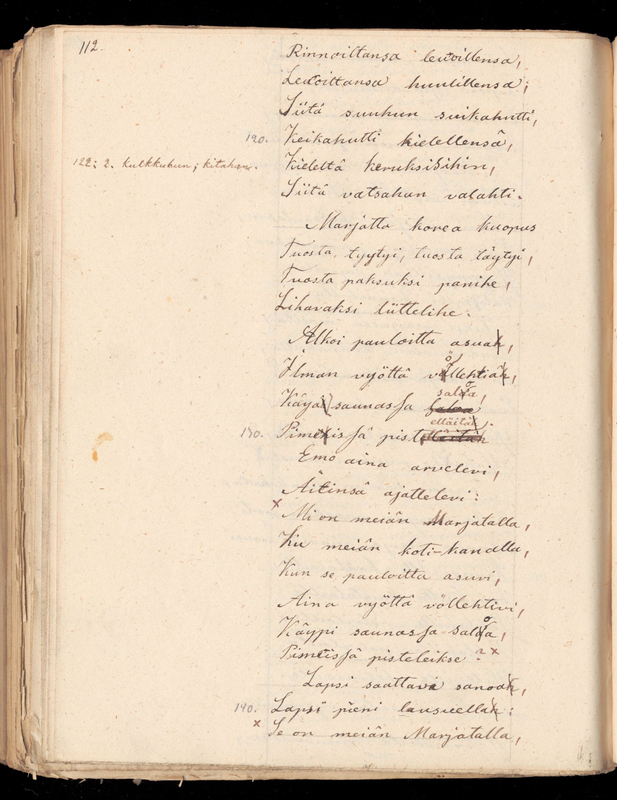 112.
Rinnoiltansa leuoillensa,
Leuoiltansa huulillensa;
Siitä suuhun suikahutti,
120. Keikahutti kielellensä,
122: 2. kulkkuhun; kitahan. Kieleltä keruksisihin,
Siitä vatsahan valahti.
Marjatta korea kuopus
Tuosta tyytyi, tuosta täytyi,
Tuosta paksuksi panihe,
Lihavaksi liittelihe.
Alkoi pauloitta asuak,
Ilman vyöttä völlehtiäk,
Käyä saunassa saloa,
130. Pimeissä pistelläitäk.
Emo aina arvelevi,
Äitinsä ajattelevi:
x Mi on meiän Marjatalla,
Ku meiän koti-kanalla,
Kun se pauloitta asuvi,
Aina vyöttä völlehtivi,
Käypi saunassa saloa,
Pimeissä pisteleikse? x
Lapsi saattavi sanoak,
140. Lapsi pieni lausuellak:
x Se on meiän Marjatalla,